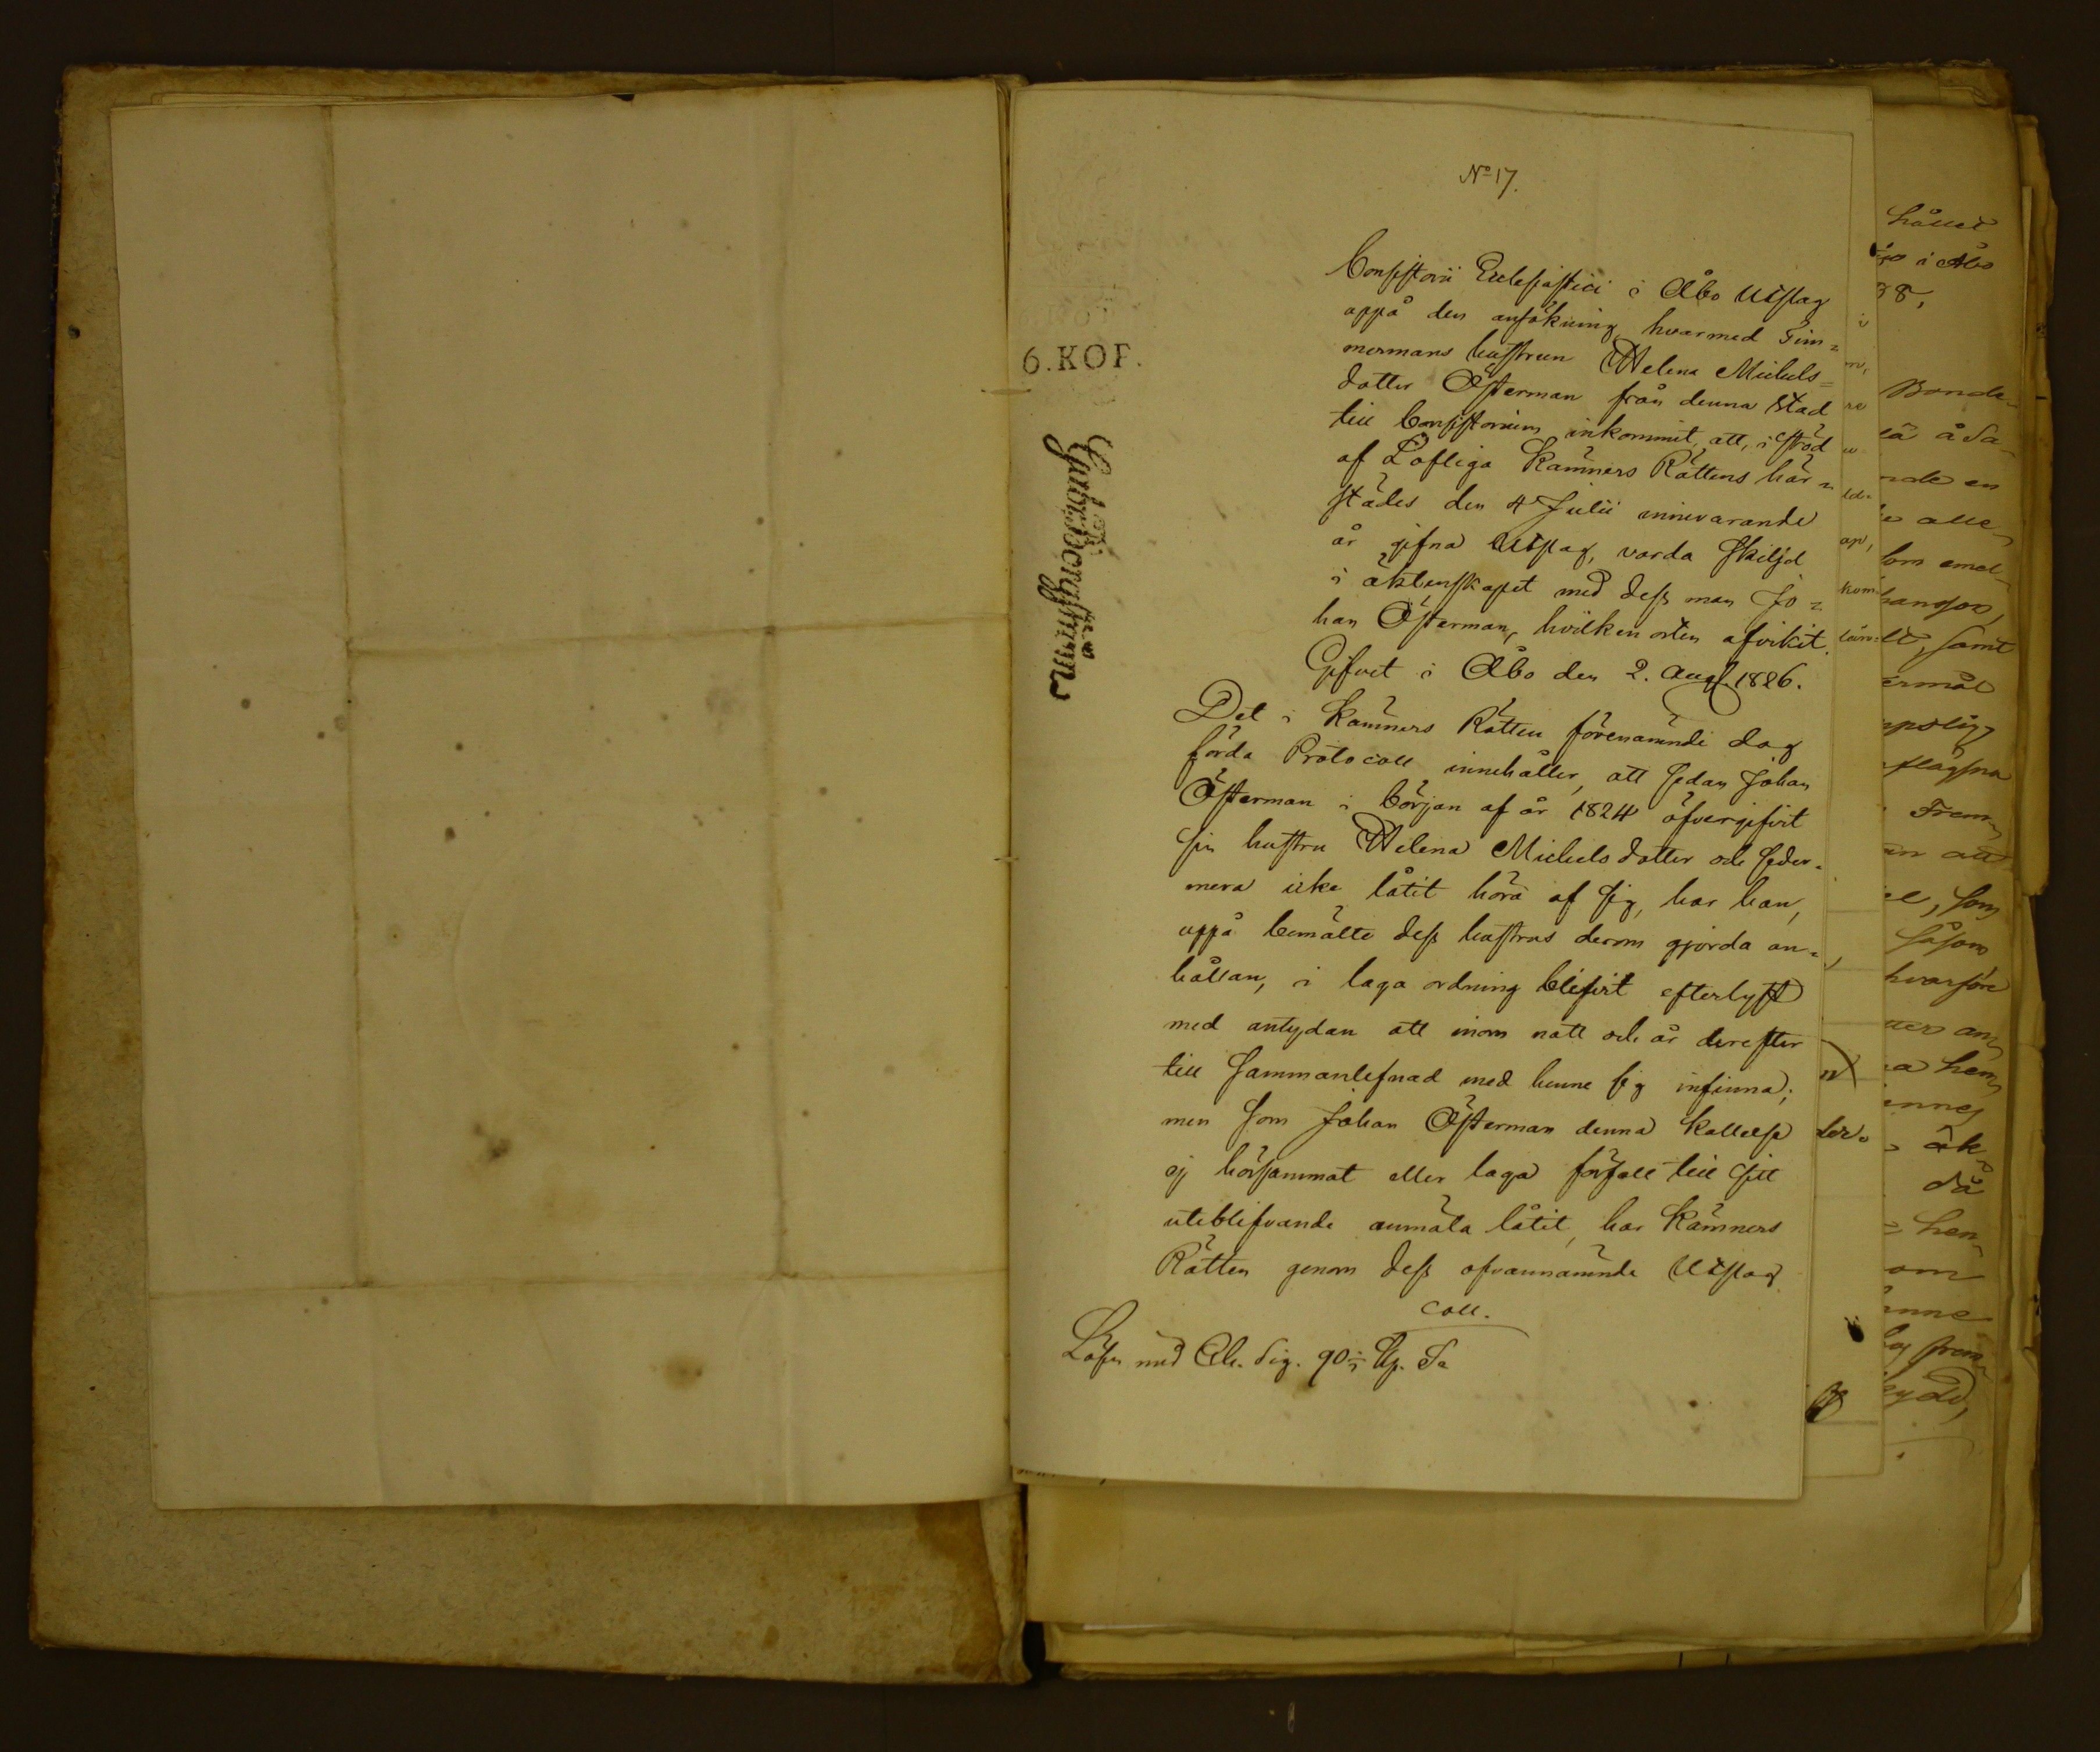 No 17.
6. KOP.
Consistorii Ecclesiastici i Åbo Utslag
uppå den ansökning hvarmed Tim=
mermans hustrun Helena Michels=
dotter Österman från denna Stad
till Consistorium inkommit, att, i stöd
af Lofliga Kämners Rättens här=
städes den 4 Julii innevarande
år gifna Utslag, varda skiljd
i äktenskapet med dess man Jo=
han Österman, hvilken orten afvikit.
Gifvet i Åbo den 2. Aug. 1826.
Det i Kämners Rätten förenämnde dag
förda Protocoll innehåller, att sedan Johan
Österman i början af år 1824 öfvergifvit
sin hustru Helena Michelsdotter och seder=
mera icke låtit höra af sig, har han,
uppå bemälte dess hustrus derom gjorda an=
hållan, i laga ordning blifvit efterlyst
med antydan att inom natt och år derefter
till sammanlefnad med henne sig infinna;
men som Johan Österman denna kallelse
ej hörsammat eller laga förfall till sitt
uteblifvande anmäla låtit, har Kämners
Rätten genom dess ofvannämnde Utslag
Coll.
Lösen med Ch. Sig. 90
hållet
i Åbo
38,
Bonde=
å Sa=
en
alle=
som emel=
samt
Frem=
att
som
såsom
hvarföre
an=
hem=
äk=
då
hen=
om